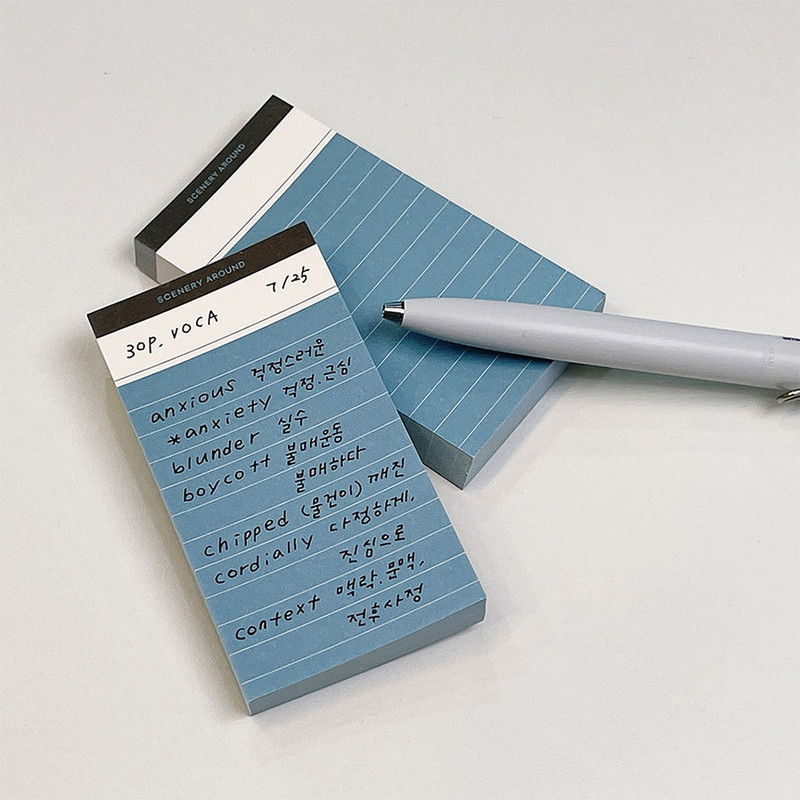 SCENERY AROUND
SCENERY AROUND
7/25
30p. VOCA
anxious 걱정스러운
*anxiety 걱정.근심
blunder 실수
boycott 불매운동
불매하다
chipped (물건이) 깨진
cordially 다정하게,
진심으로
context 맥락.문맥,
전후사정